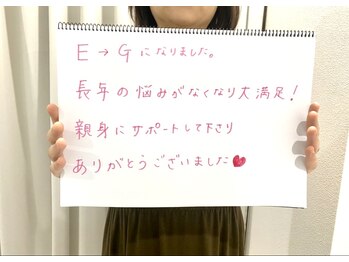 E→Gになりました。
長年の悩みがなくなり大満足!
親身にサポートして下さり
ありがとうございました♥